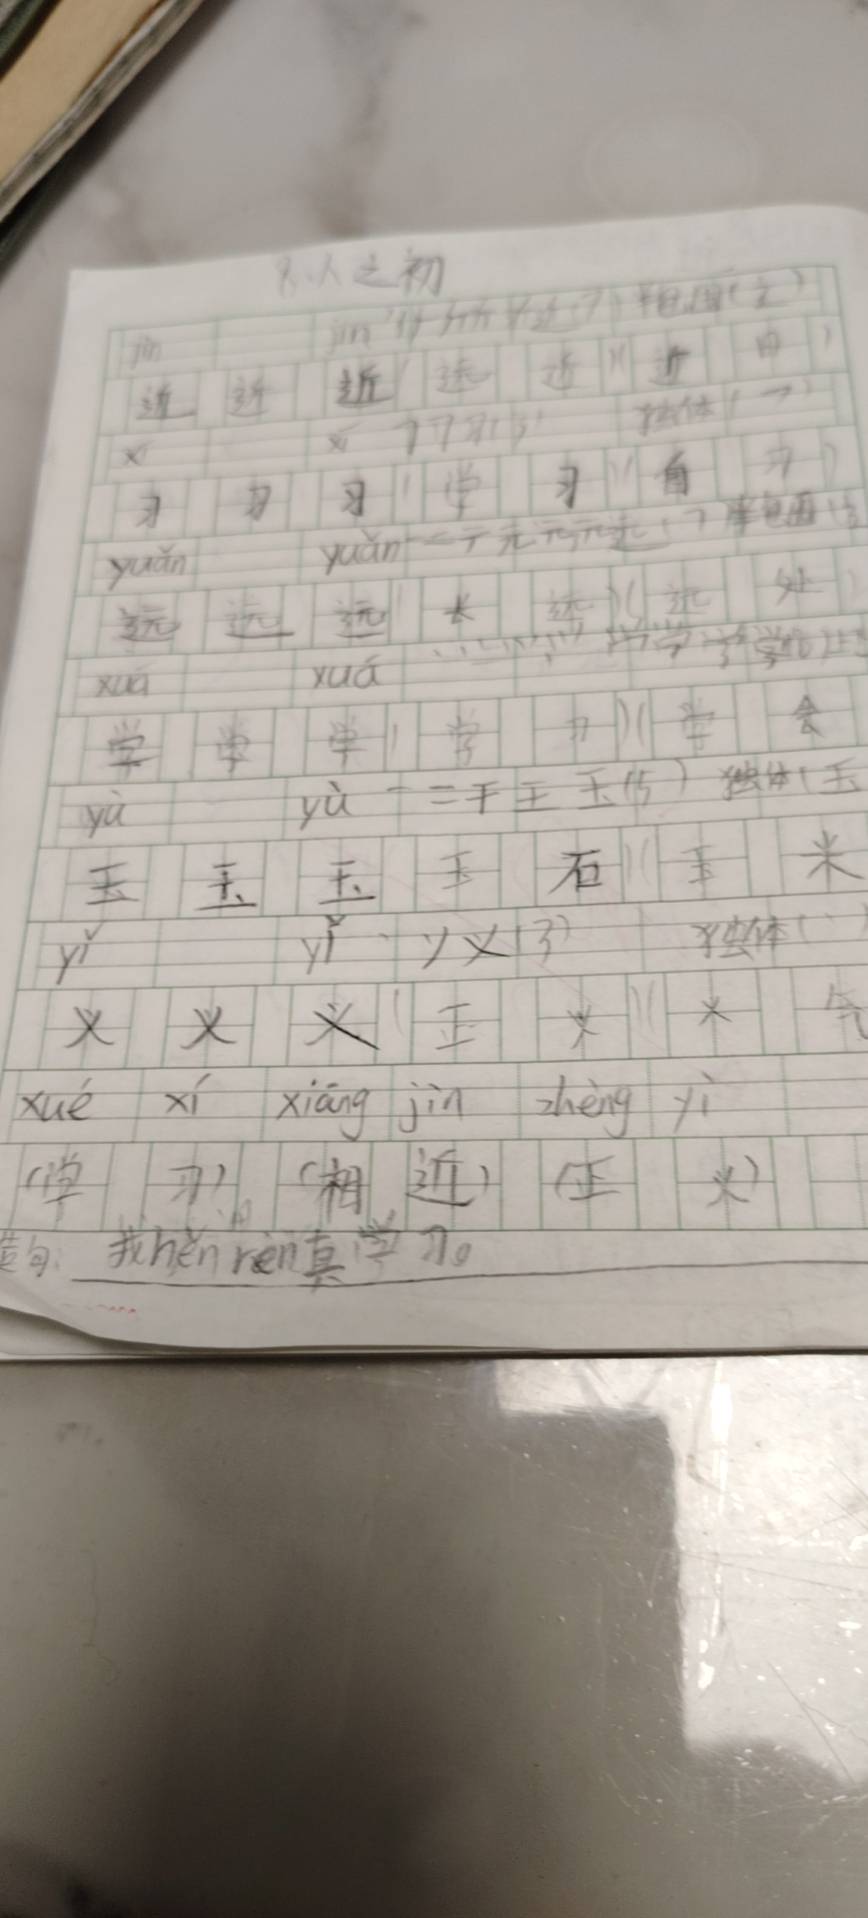 8.人之初
jìn jìn (7) 半包围(辶)
近 近 近(远 近)(近 日)
xí xí 习(3) 独体(㇆)
习 习 习(学 习)(自 习)
yuǎn yuǎn 一 二 テ 元 远(7) 半包围(辶
远 远 远(长 远)(远 处)
xuá xuá
学 学 学(学 习)(学 会
yù yù 一 二 干 王 玉(5) 独体(玉
玉 玉 玉(玉 石)(玉 米
yǐ yǐ 丶 ソ 义(3) 独体(丶)
义 义 义(正 义)(义 气
xué xí xiāng jìn zhèng yì
(学 习) (相 近) (正 义)
造句: 我hěn rèn真学习。